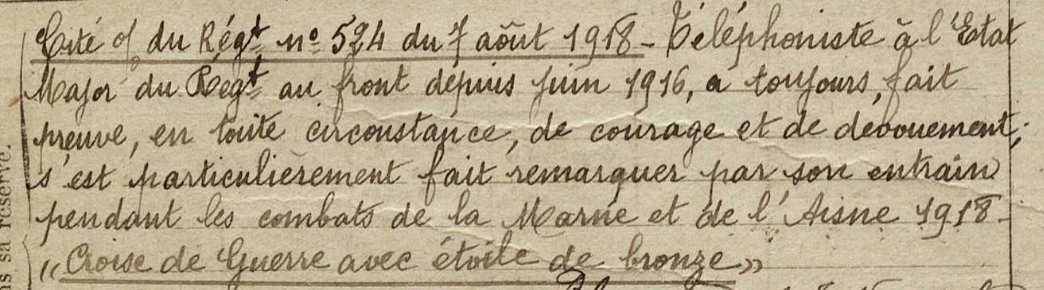 Cité O/ du Régt nº 524 du 7 août 1918 - Téléphoniste à l'Etat
Major du Régt au front depuis juin 1916, a toujours, fait
preuve, en toute circonstance, de courage et de dévouement;
s'est particulièrement fait remarquer par son entrain
pendant les combats de la Marne et de l'Aisne 1918 -
"Croise de Guerre avec étoile de bronze"
ns sa réserve.